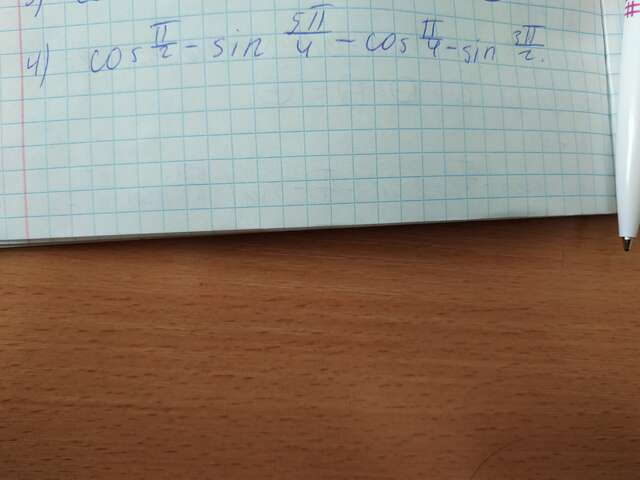 4) cos π/2 - sin 5π/4 - cos π/4 - sin 3π/2.